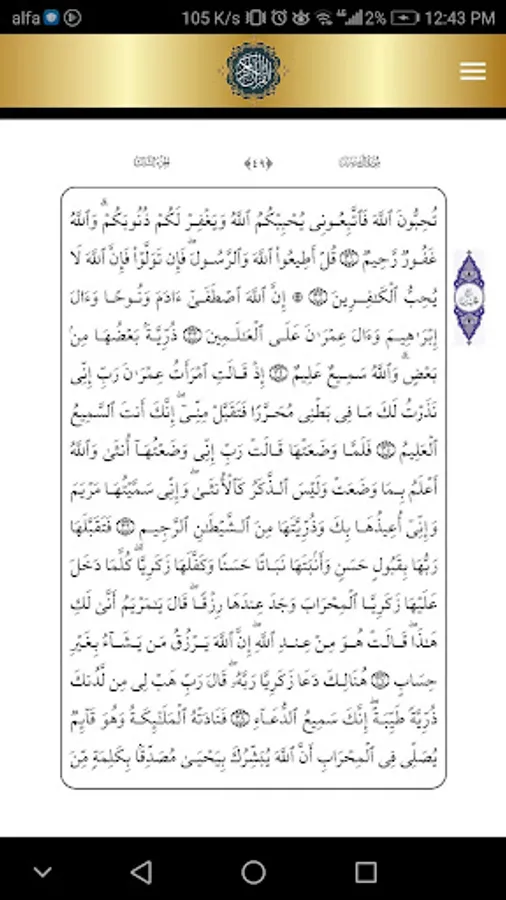 alfa 105 K/s 4G 2% 12:43 PM
﴿٤٩﴾
تُحِبُّونَ ٱللَّهَ فَٱتَّبِعُونِى يُحْبِبْكُمُ ٱللَّهُ وَيَغْفِرْ لَكُمْ ذُنُوبَكُمْ ۗ وَٱللَّهُ
غَفُورٌ رَّحِيمٌ قُلْ أَطِيعُوا۟ ٱللَّهَ وَٱلرَّسُولَ ۖ فَإِن تَوَلَّوْا۟ فَإِنَّ ٱللَّهَ لَا
يُحِبُّ ٱلْكَـٰفِرِينَ ۞ إِنَّ ٱللَّهَ ٱصْطَفَىٰٓ ءَادَمَ وَنُوحًا وَءَالَ
إِبْرَٰهِيمَ وَءَالَ عِمْرَٰنَ عَلَى ٱلْعَـٰلَمِينَ ذُرِّيَّةًۢ بَعْضُهَا مِنۢ
بَعْضٍ ۗ وَٱللَّهُ سَمِيعٌ عَلِيمٌ إِذْ قَالَتِ ٱمْرَأَتُ عِمْرَٰنَ رَبِّ إِنِّى
نَذَرْتُ لَكَ مَا فِى بَطْنِى مُحَرَّرًا فَتَقَبَّلْ مِنِّىٓ ۖ إِنَّكَ أَنتَ ٱلسَّمِيعُ
ٱلْعَلِيمُ فَلَمَّا وَضَعَتْهَا قَالَتْ رَبِّ إِنِّى وَضَعْتُهَآ أُنثَىٰ وَٱللَّهُ
أَعْلَمُ بِمَا وَضَعَتْ وَلَيْسَ ٱلذَّكَرُ كَٱلْأُنثَىٰ ۖ وَإِنِّى سَمَّيْتُهَا مَرْيَمَ
وَإِنِّىٓ أُعِيذُهَا بِكَ وَذُرِّيَّتَهَا مِنَ ٱلشَّيْطَـٰنِ ٱلرَّجِيمِ فَتَقَبَّلَهَا
رَبُّهَا بِقَبُولٍ حَسَنٍ وَأَنۢبَتَهَا نَبَاتًا حَسَنًا وَكَفَّلَهَا زَكَرِيَّا ۖ كُلَّمَا دَخَلَ
عَلَيْهَا زَكَرِيَّا ٱلْمِحْرَابَ وَجَدَ عِندَهَا رِزْقًا ۖ قَالَ يَـٰمَرْيَمُ أَنَّىٰ لَكِ
هَـٰذَا ۖ قَالَتْ هُوَ مِنْ عِندِ ٱللَّهِ ۖ إِنَّ ٱللَّهَ يَرْزُقُ مَن يَشَآءُ بِغَيْرِ
حِسَابٍ هُنَالِكَ دَعَا زَكَرِيَّا رَبَّهُۥ ۖ قَالَ رَبِّ هَبْ لِى مِن لَّدُنكَ
ذُرِّيَّةً طَيِّبَةً ۖ إِنَّكَ سَمِيعُ ٱلدُّعَآءِ فَنَادَتْهُ ٱلْمَلَـٰٓئِكَةُ وَهُوَ قَآئِمٌ
يُصَلِّى فِى ٱلْمِحْرَابِ أَنَّ ٱللَّهَ يُبَشِّرُكَ بِيَحْيَىٰ مُصَدِّقًۢا بِكَلِمَةٍ مِّنَ